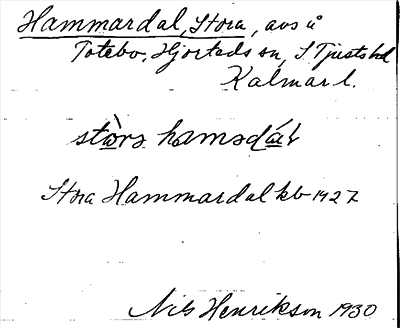 Hammardal, Stora, avs å
Totebo, Hjorteds sn, S. Tjusts hd
Kalmar l.
Stora Hammardal kb 1927
Nils Henrikson 1930